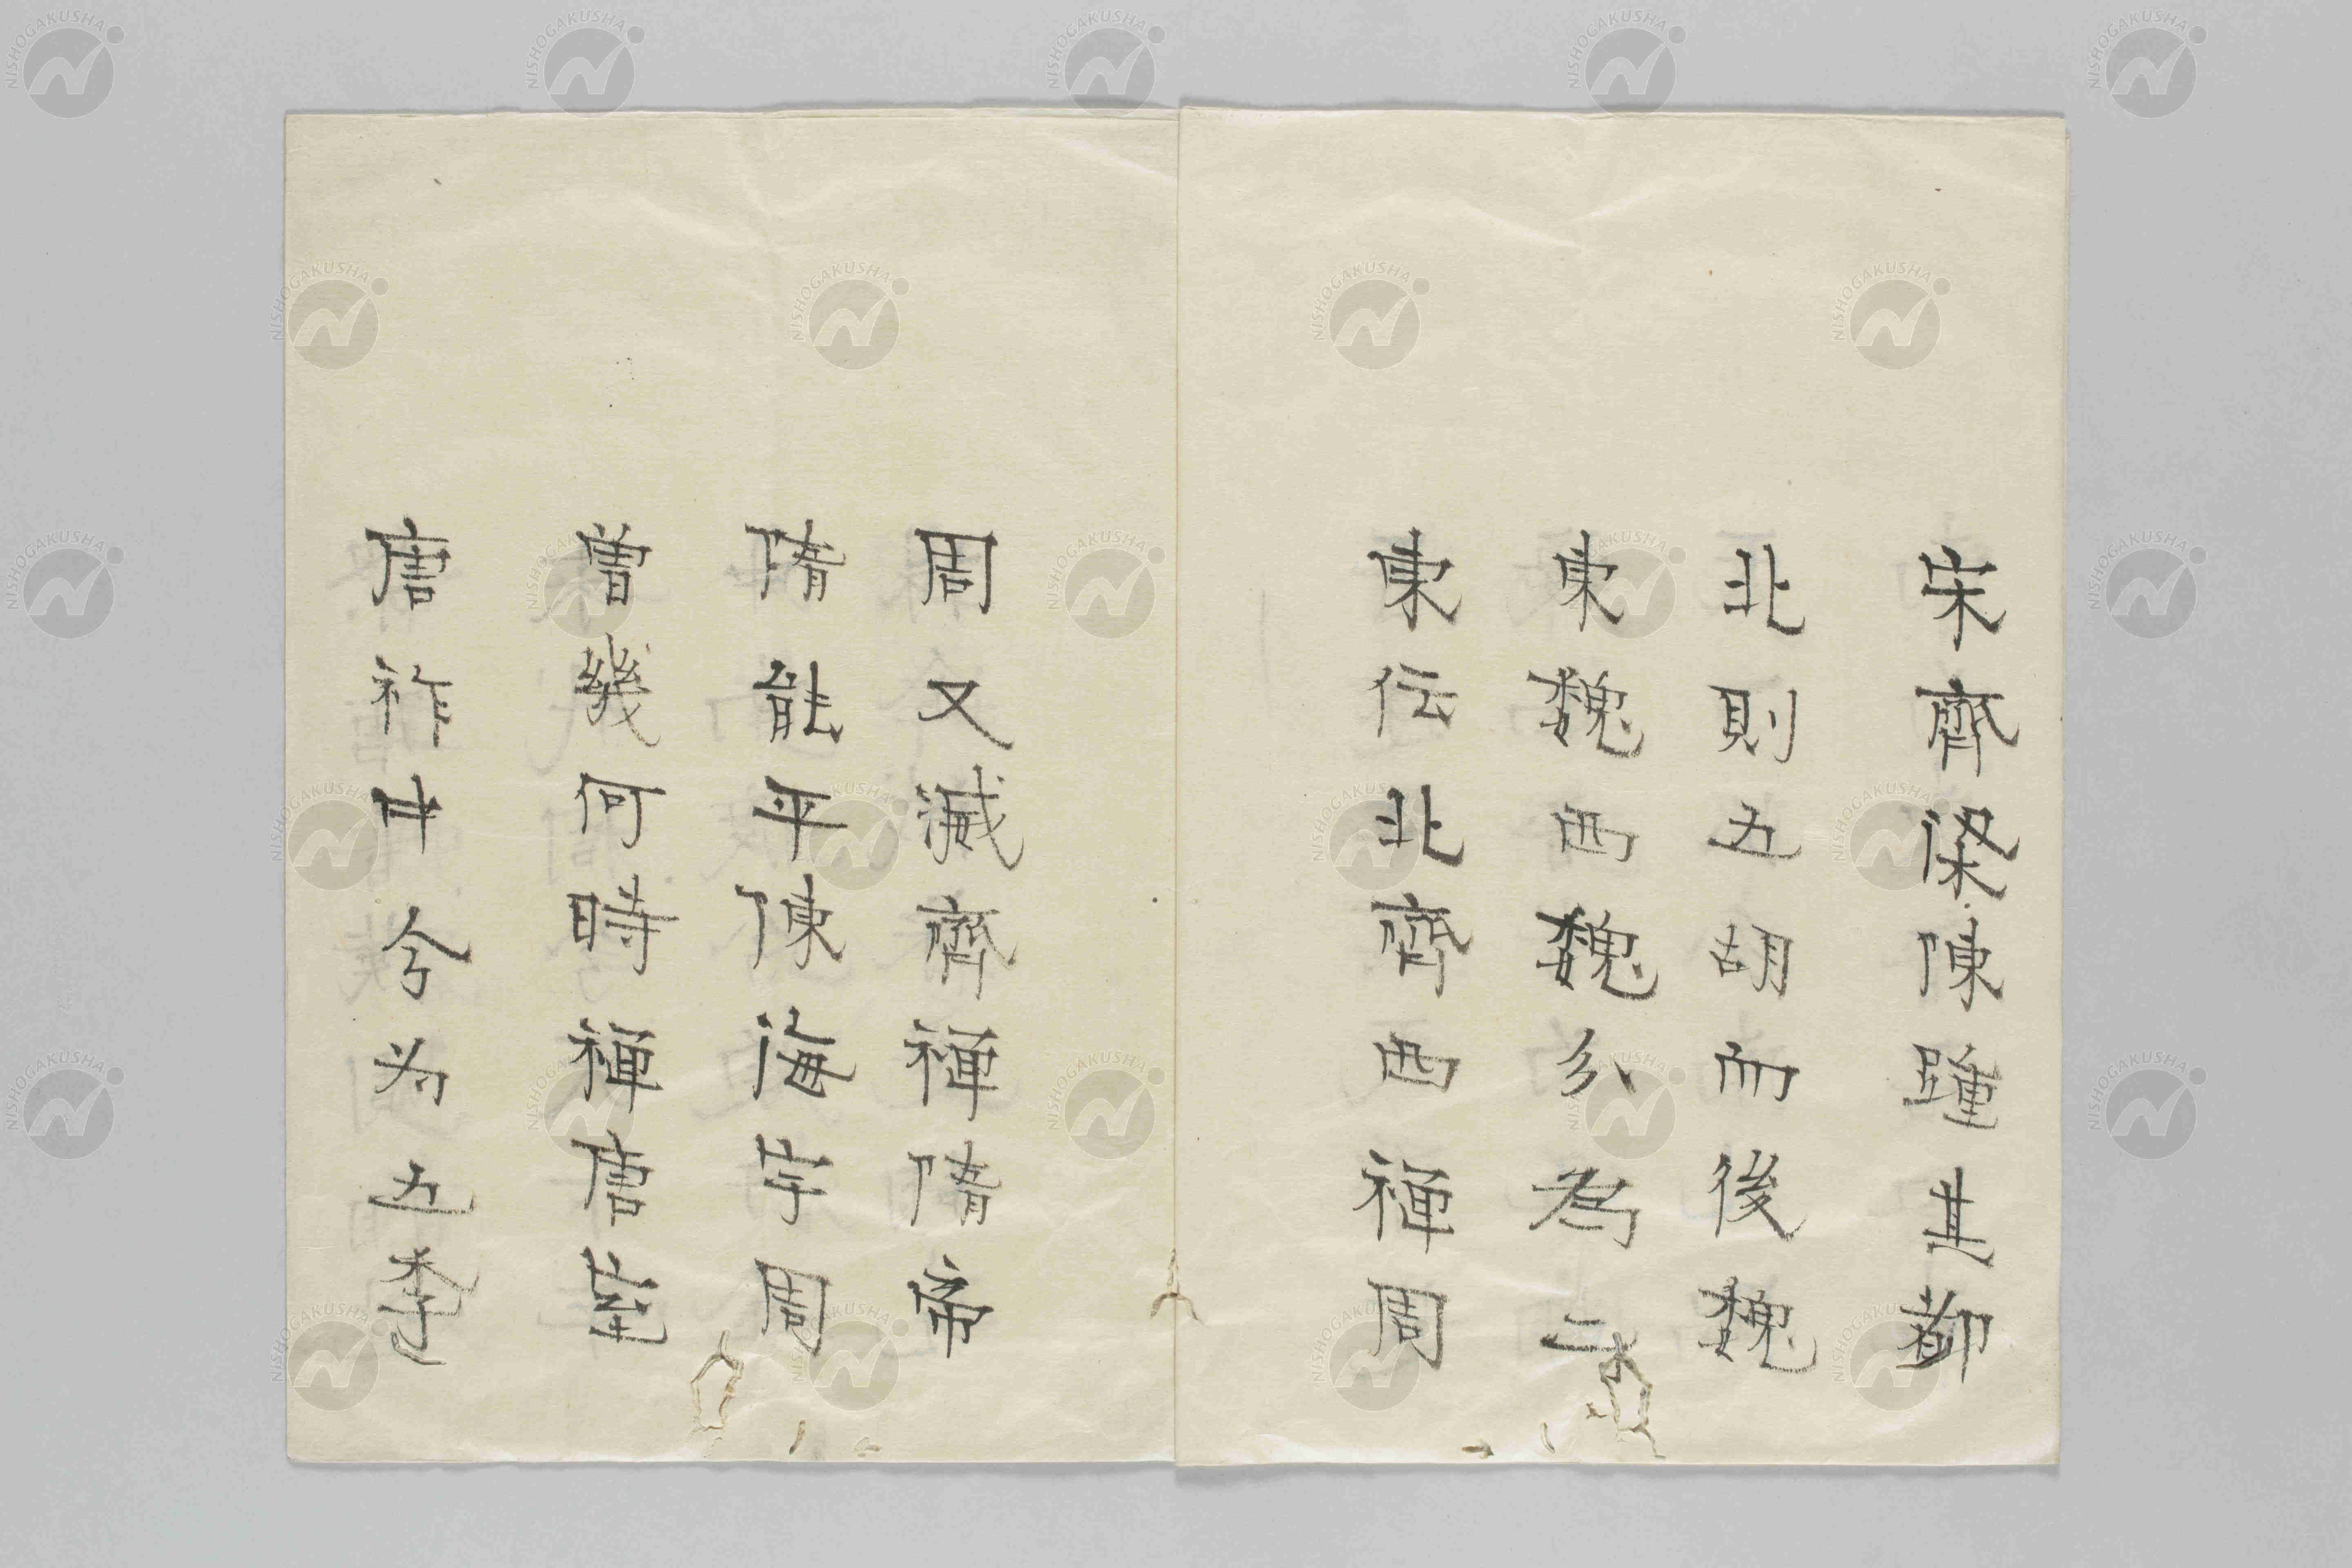 宋齊梁陳踵其都
北則五胡而後魏
東魏西魏分為二
東伝北齊西禪周
周又滅齊禪隋帝
隋能平陳海宇周
曽幾何時禪唐室
唐祚中今为五季
NISHOGAKUSHA